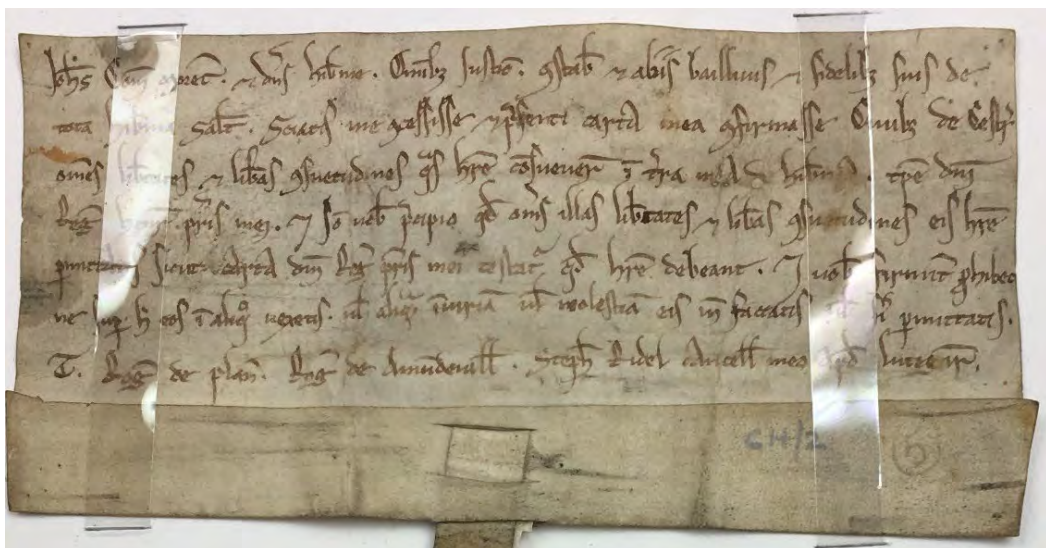 Joh̄s Com̄ Moret̄. ⁊ dn̄s hib̄nie. Om̄ibȝ Justic̄. ꝯstab̄ ⁊ aliis baillivis ⁊ fidelibȝ suis de
tota hib̄nia Sal̄t. Sciatis me ꝯcessisse ⁊ p̄senti carta mea ꝯfirmasse Civibȝ de Cestr̄
om̄es lib̄tates ⁊ lib̄as ꝯsuetudines q̄s hr̄e ꝯsuever̄ ī t̄ra mea de hib̄nia. tp̄e dn̄i
Reḡ henr̄. pr̄is mei. ⁊ Jō vob̄ p̄cipio qd̄ om̄s illas lib̄tates ⁊ lib̄as ꝯsuetudines eis hr̄e
p̄mittatis sicut carta dn̄i Reḡ pr̄is mei testat̄ qd̄ hr̄e debeant. ⁊ vob̄ firmit̄ p̄hibeo
ne sup̄ h̄ eos ī aliq̄ vexetis. vl̄ aliq̄m īiuriā vl̄ molestiā eis faciatis vl̄ fi̅ p̄mittatis.
T. Roḡ de plan̄. Roḡ de Amundevill̄. Steph̄ Ridel Cancell̄ meo apd̄
CH/2 5